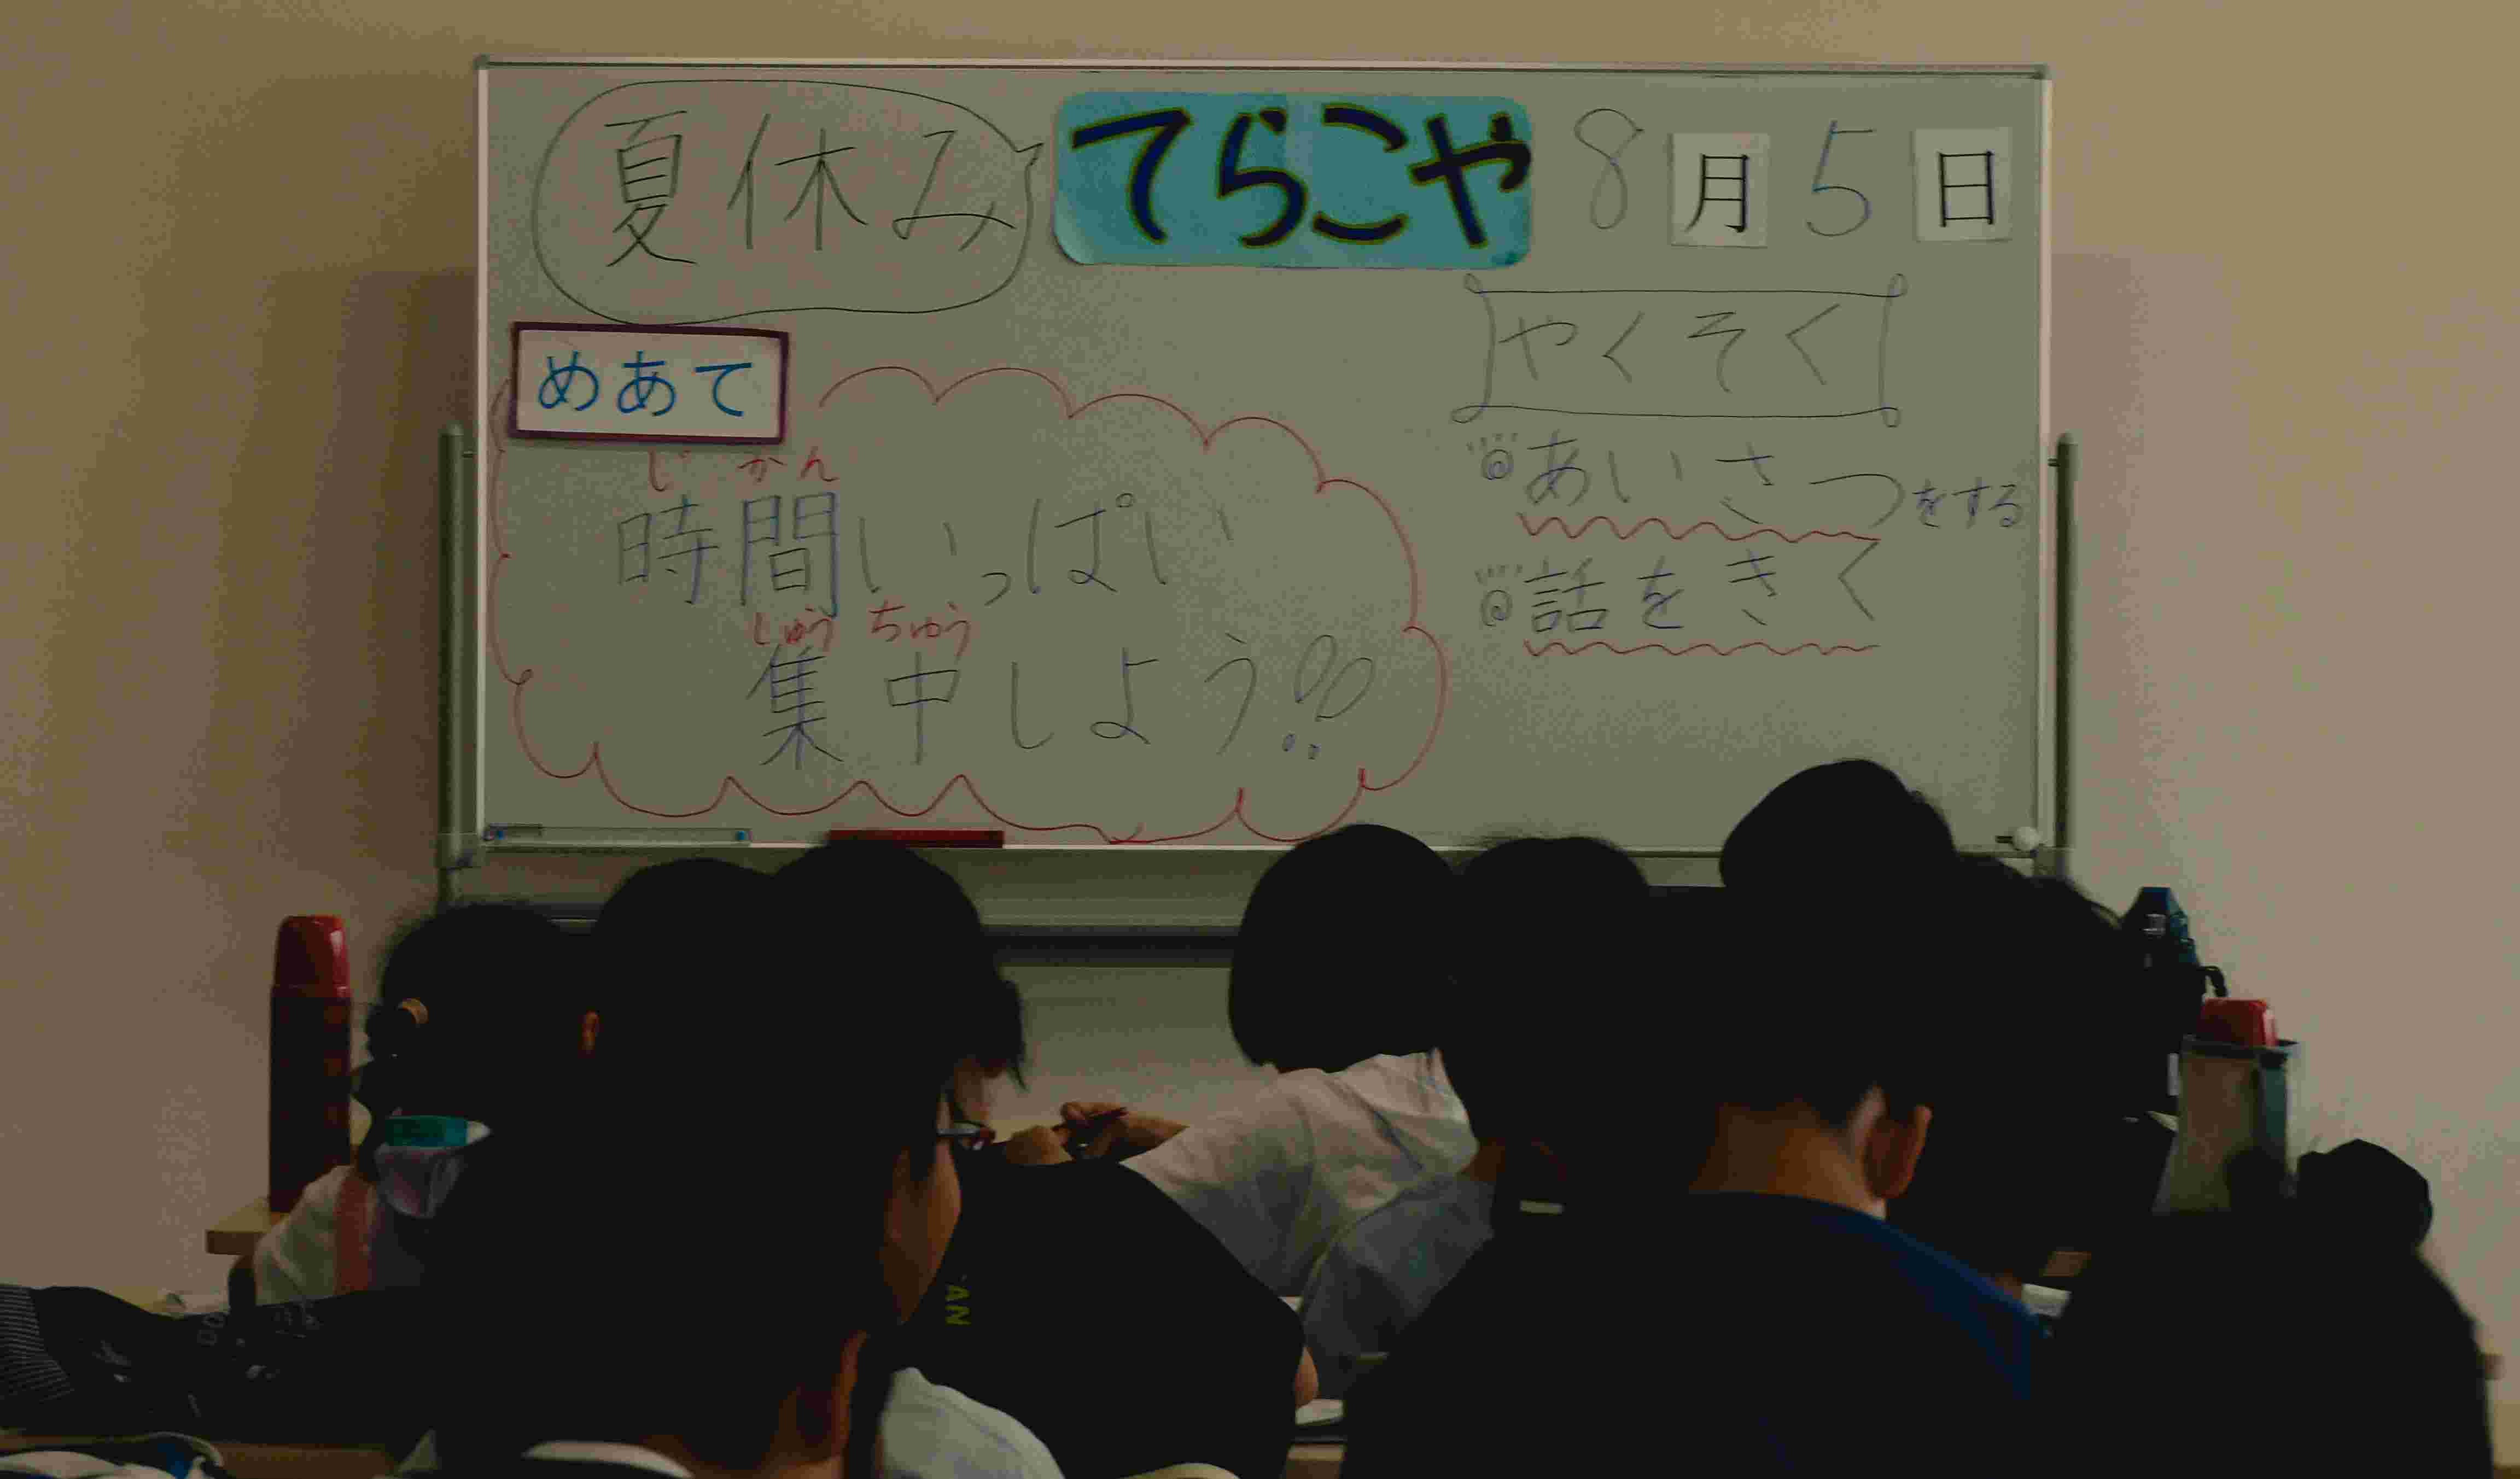 夏休み てらこや 8月5日
めあて
じかん
時間いっぱい
しゅうちゅう
集中しよう!!
やくそく
◎あいさつをする
◎話をきく
AN